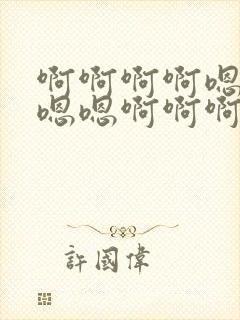 啊啊啊啊嗯
嗯嗯啊啊啊
許國偉